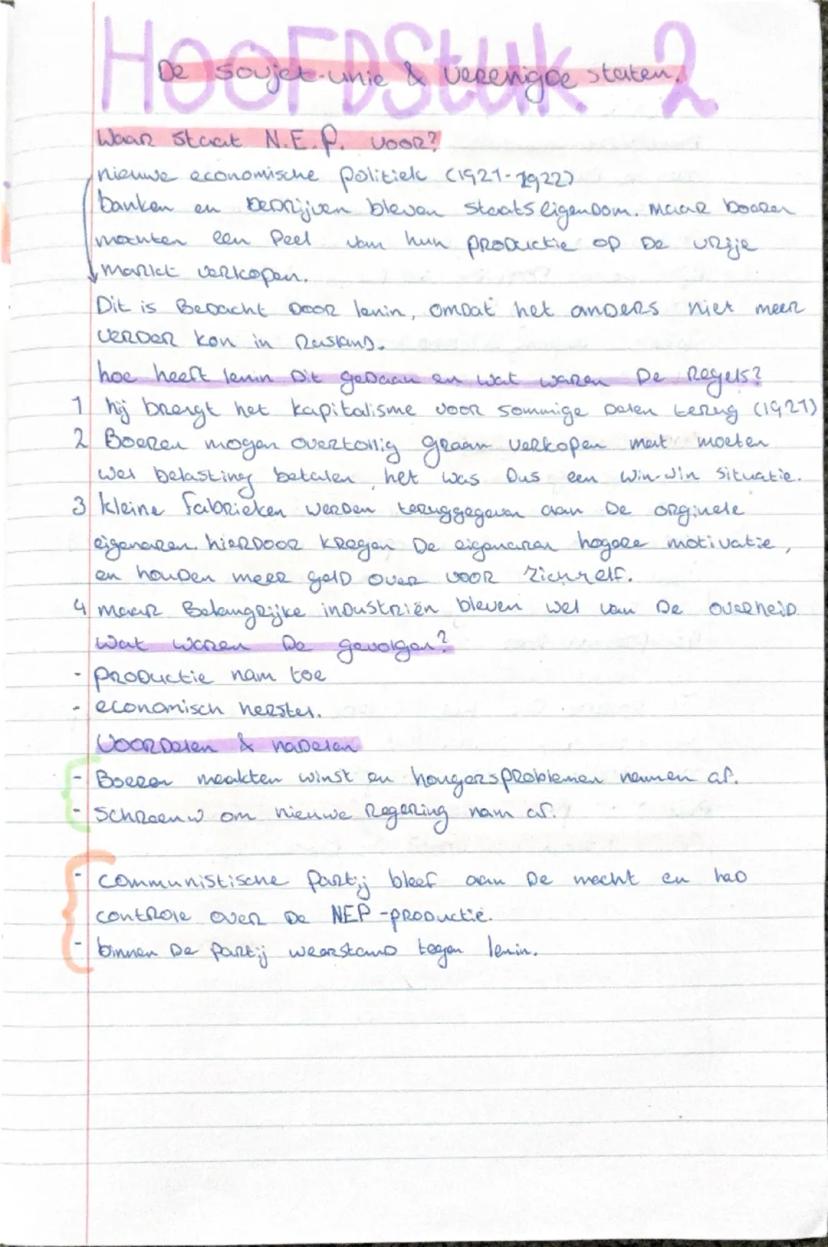 HOOFDStuk 2
De sovjet-unie & verenigde staten.
Waar staat N.E.P. voor?
nieuwe economische politiek (1921-1922)
banken en bedrijven bleven staatseigendom. maar boeren
mochten een deel van hun productie op de vrije
markt verkopen.
Dit is Bedacht door lenin, omdat het anders niet meer
verder kon in Rusland.
hoe heeft lenin dit gedaan en wat waren de regels?
1 hij brengt het kapitalisme voor sommige delen terug (1921)
2 Boeren mogen overtollig graan verkopen maar moeten
wel belasting betalen, het was dus een win-win situatie.
3 kleine fabrieken werden teruggegeven aan de orginele
eigenaren. hierdoor kregen de eigenaren hogere motivatie,
en houden meer geld over voor zichzelf.
4 maar Belangrijke industriën bleven wel van de overheid
Wat waren de gevolgen?
- productie nam toe
- economisch herstel.
Voordelen & nadelen
- Boeren maakten winst en hongersproblemen namen af.
- schreeuw om nieuwe regering nam af.
- communistische partij bleef aan de macht en had
controle over de NEP-productie.
- binnen de partij weerstand tegen lenin.